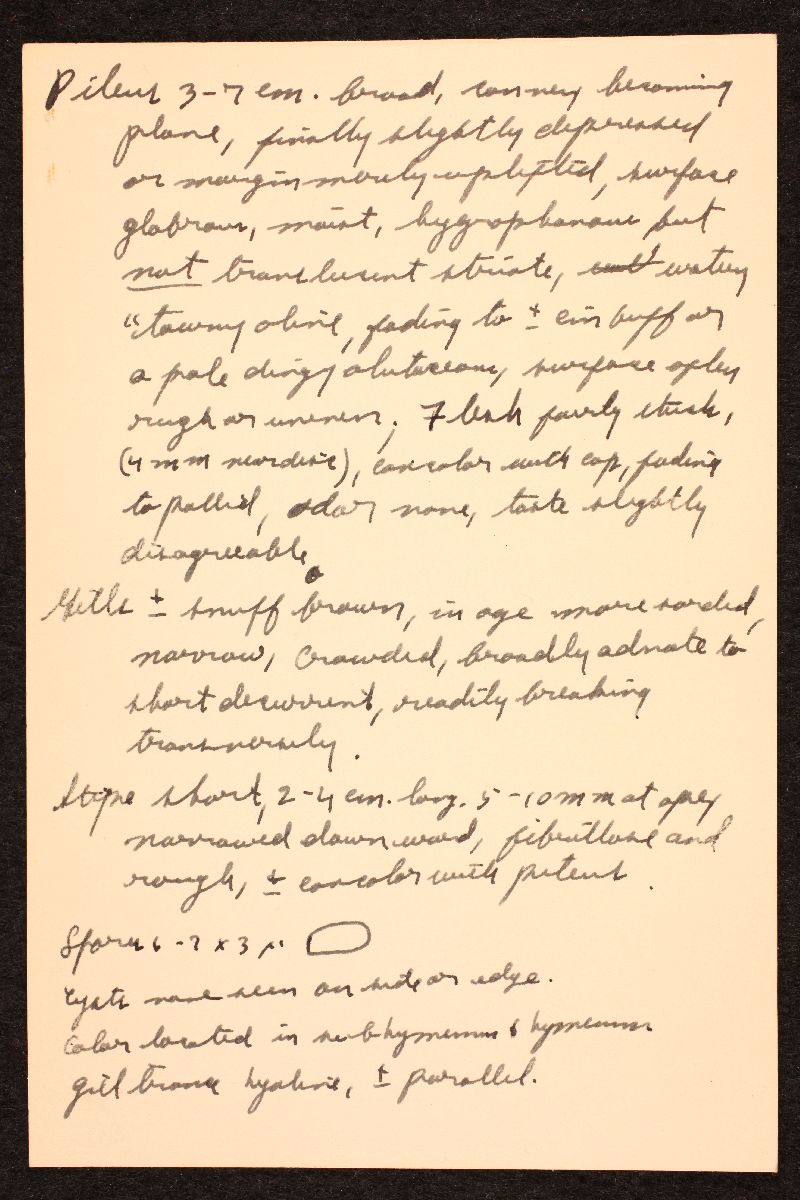 Pileus 3-7 cm. broad, convex becoming
plane, finally slightly depressed
or margin merely uplifted, surface
glabrous, moist, hygrophanous but
not translucent striate, watery
"tawny olive, fading to ± cin buff or
a pale dingy alutaceous, surface often
rough or uneven; Flesh fairly thick,
(4 mm near disc), concolor with cap, fading
to pallid, odor none, taste slightly
disagreeable.
Gills ± snuff brown, in age more sordid,
narrow, crowded, broadly adnate to
short decurrent, readily breaking
transversely.
Stipe short, 2-4 cm. long. 5-10 mm at apex
narrowed downward, fibrillose and
rough, ± concolor with pileus.
Spores 6-7 x 3 µ.
Cysts none seen on side or edge.
Color located in subhymenium & hymenium
gill trama hyaline, ± parallel.